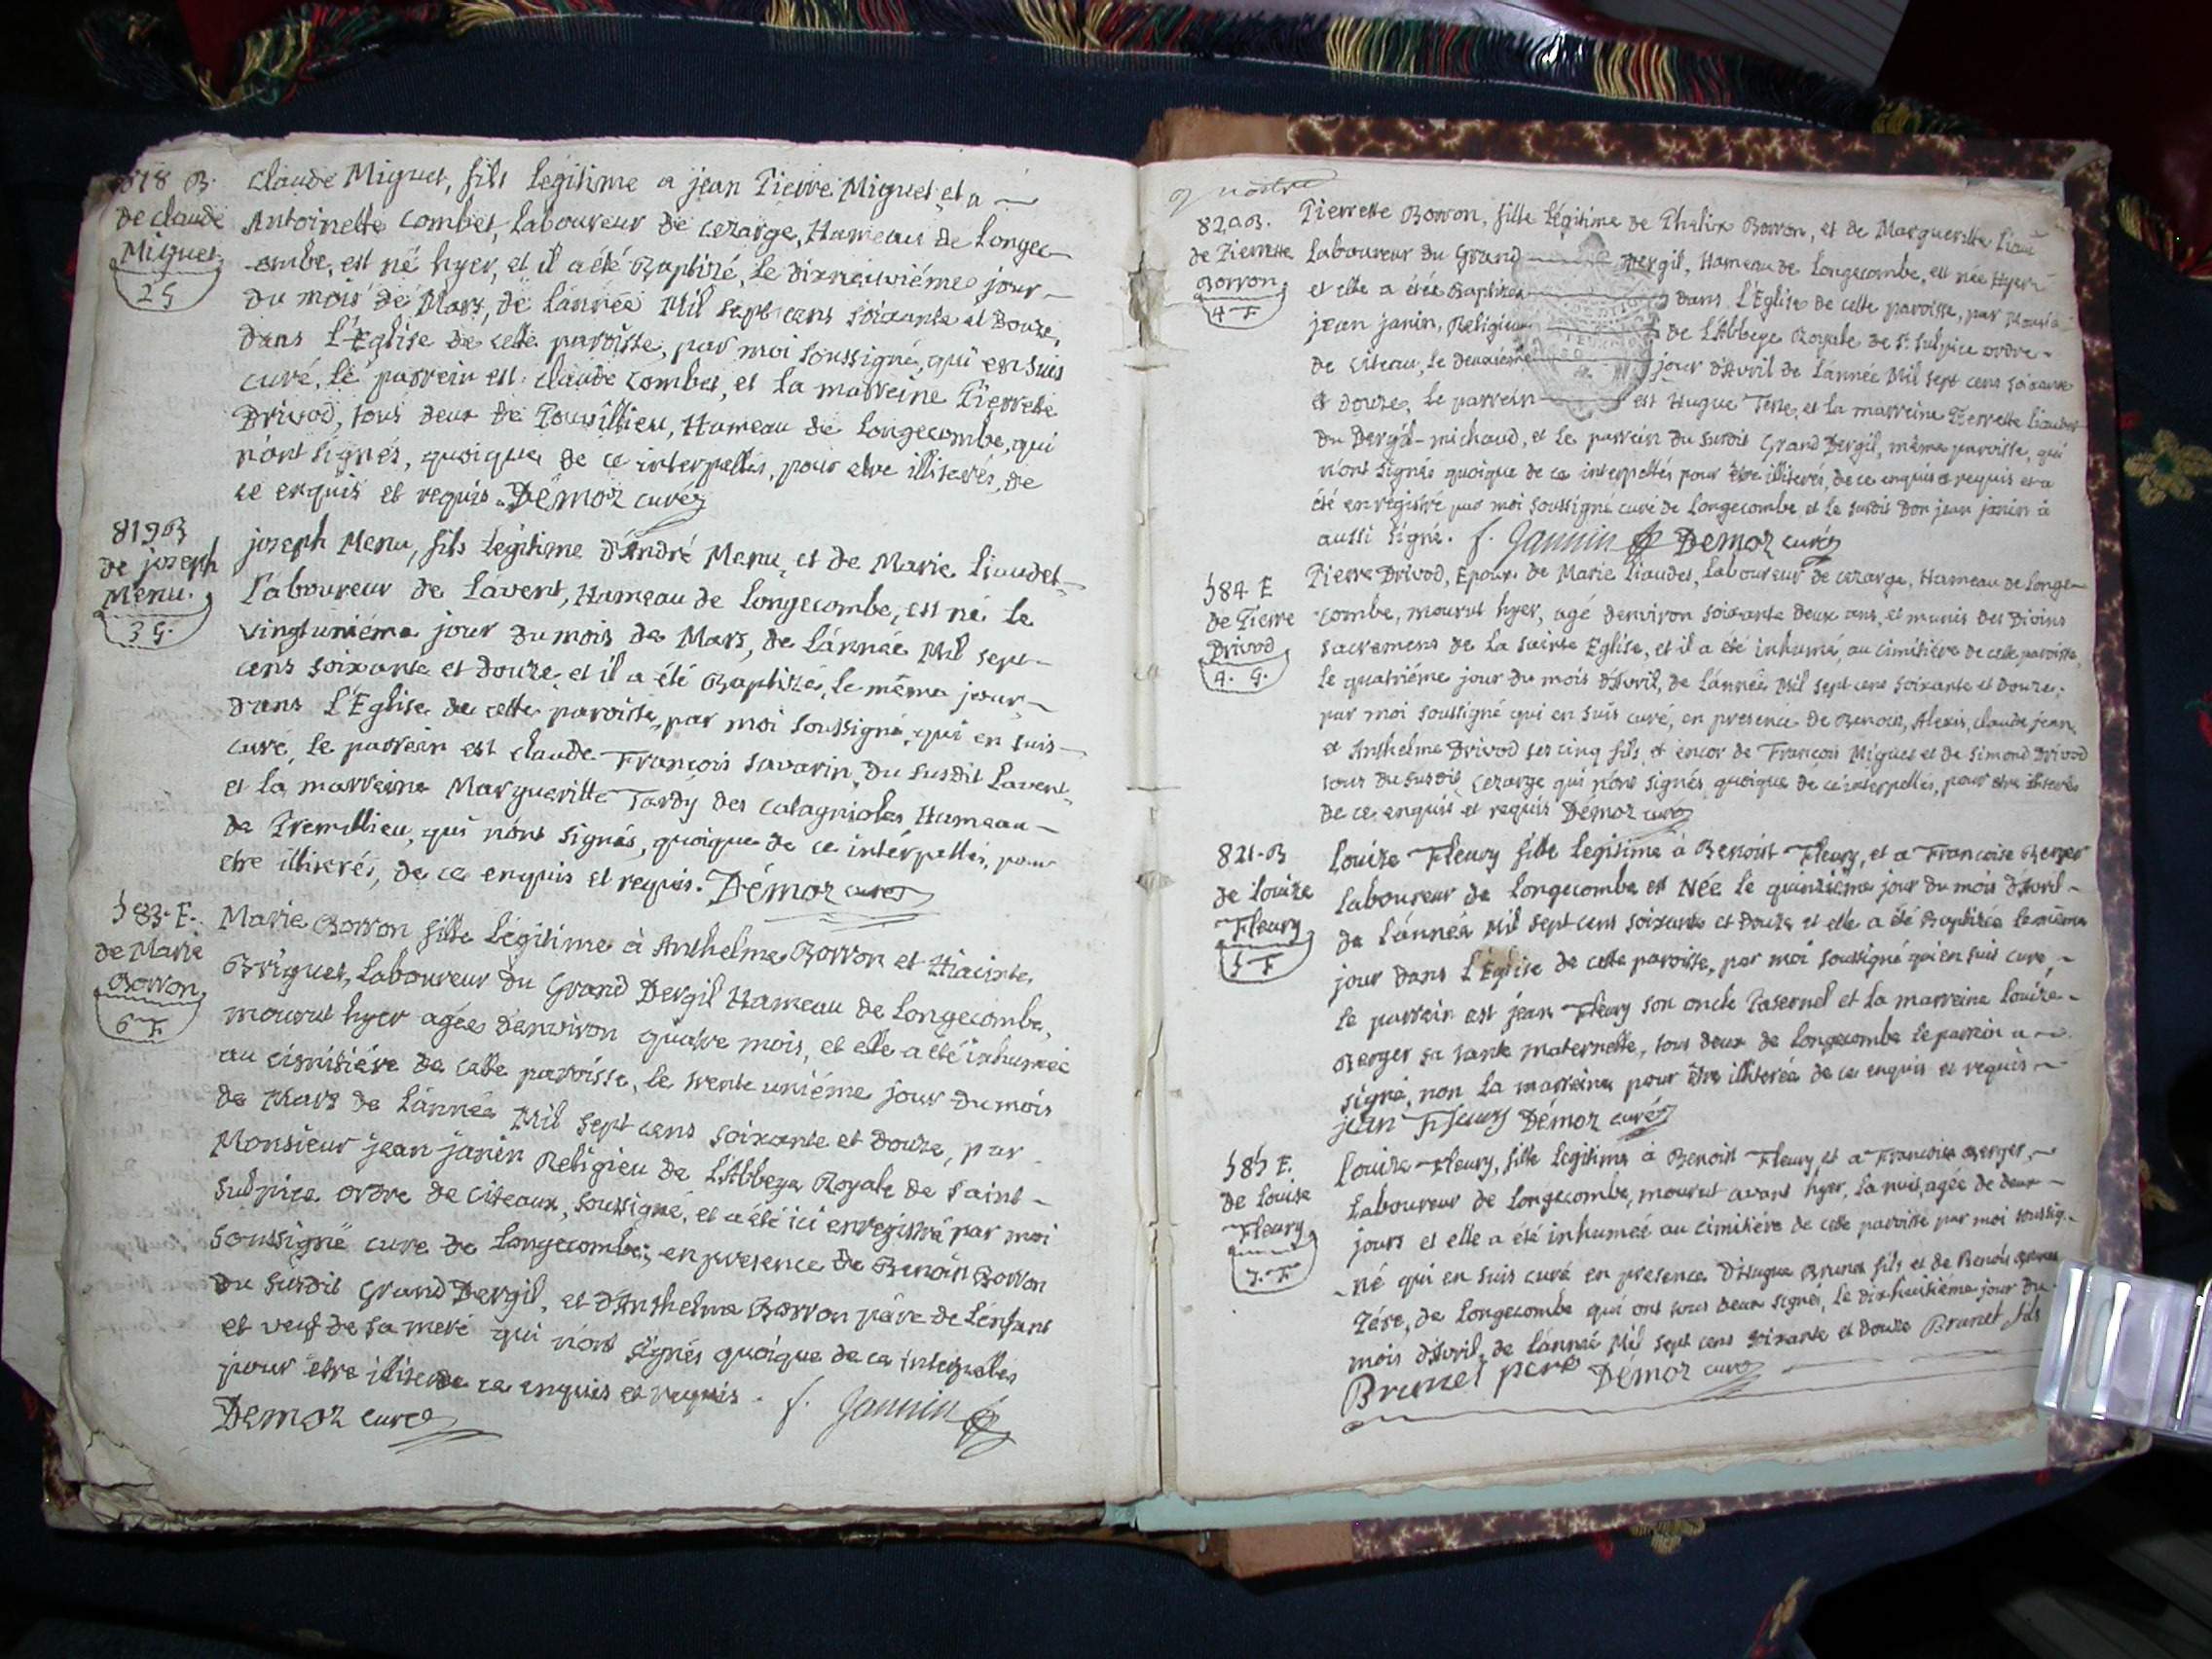 818 B.
de claude
Miguet
2 G
claude Miguet, fils legitime a jean Pierre Miguet et a
Antoinette Combet, laboureur de cezarge, Hameau de Longec
-ombe, est né hyer, et il a été Baptizé, le dixneuviéme jour
du mois de Mars, de lánnée Mil sept cens soixante et Douze,
dans l'Eglise de cette paroisse, par moi soussigné, qui en suis
curé, le parrein est claude Combet, et la marreine Pierrette
Drivod, tous deux de Pousillieu, Hameau de Longecombe, qui
n'ont signés, quoique de ce interpellés, pour etre illiterés, de
ce enquis et requis. Démoz curé
819 B
de joseph
Menu.
3 G.
joseph Menu, fils legitime d'André Menu, et de Marie Liaudet
laboureur de Lavent, Hameau de Longecombe, est né le
vingtuniéme jour du mois de Mars, de lánnée Mil sept
cens soixante et douze, et il a été Baptizé, le même jour
dans l'Eglise de cette paroisse, par moi soussigné, qui en suis
curé, le parrein est claude François Savarin, du susdit Lavent,
et la marreine Margueritte Tardy des Catagnioles Hameau
de Premillieu, qui n'ont signés, quoique de ce interpellés, pour
etre illiterés, de ce enquis et requis. Démoz curé
583. E.
de Marie
Borron,
6 F.
Marie Borron fille légitime à Anthelme Borron et Hiacinte,
Briguet, laboureur du Grand Dergil Hameau de Longecombe,
mourut hyer agée denviron quatre mois, et elle a été inhumée
au cimitiére de cette paroisse, le trente uniéme jour du mois
de Mars de lánnée Mil sept cens soixante et douze, par
Monsieur jean janin Religieu de l'Abbeye Royale de saint
sulpice ordre de Citeaux, soussigné, et a été ici enregistré par moi
soussigné curé de Longecombe, en presence de Benoit Borron
du susdit Grand Dergil, et d'Anthelme Borron pére de lénfant
et veuf de sa meré qui n'ont signés quoique de ce interpellés
pour etre illiterés de ce enquis et requis. f. Jannin
Démoz curé
820 B.
de Pierrette
Borron,
4 F
Pierrette Borron, fille légitime de Phelix Borron, et de Margueritte Liau
laboureur du Grand Dergil, Hameau de Longecombe, est née Hyer
et elle a étée Baptizée dans l'Eglise de cette paroisse, par
jean janin, Religieu de l'Abbeye Royale de St. sulpice ordre
de Citeau, le deuxiéme jour d'Avril de lánnée Mil sept cens soixante
et douze, le parrein est Hugue Teste, et la marreine Pierrette Liaudet
du Dergil-michaud, et le parrein du susdit Grand Dergil, même paroisse, qui
n'ont signés quoique de ce interpellés pour être illiterés, de ce enquis et requis et a
été enregistré par moi soussigné curé de Longecombe, et le susdit Don jean janin à
aussi signé. f. Jannin Démoz curé
584 E
de Pierre
Drivod
4. G.
Pierre Drivod, Epoux de Marie Liaudet, laboureur de cezarge, Hameau de Longe
-combe, mourut hyer, agé denviron soixante deux ans, et munis des Divins
sacremens de la sainte Eglise, et il a été inhumé, au cimitiére de cette paroisse,
le quatriéme jour du mois d'Avril, de lánnée Mil sept cens soixante et douze,
par moi soussigné qui en suis curé, en presence de Benoit, Alexis, claude, jean,
et Anthelme Drivod ses cinq fils, et encor de François Miguet et de Simond Drivod
tous du susdit Cezarge qui n'ont signés, quoique de ce interpellés, pour etre illiterés
de ce enquis et requis Démoz curé
821. B
de louize
Fleury
5 F
louize Fleury fille legitime à Benoist Fleury, et a Francoise Berger
laboureur de Longecombe est Née le quinziéme jour du mois d'Avril
de lánnée Mil sept cens soixante et Douze et elle a été Baptizée le même
jour dans l'Eglise de cette paroisse, par moi soussigné qui en suis curé,
le parrein est jean Fleury son oncle Paternel et la marreine louize
Berger sa tante maternelle, tous deux de Longecombe le parrein a
signé, non la marreine pour être illiterée de ce enquis et requis
jean Fleury Démoz curé
585 E.
de louise
Fleury,
7. F
louize Fleury, fille legitime à Benoist Fleury, et a Francoise Berger,
laboureur de Longecombe, mourut avant hyer, la nuit, agée de deux
jours et elle a été inhumeé au cimitiére de cette paroisse par moi soussig
-né qui en suis curé en presence d'Hugue Brunet fils et de Benoit Brunet
Pére, de Longecombe qui ont tous deux signés, le dixhuitiéme jour du
mois d'Avril, de lánneé Mil sept cens soixante et douze Brunet fils
Brunet pere Démoz curé